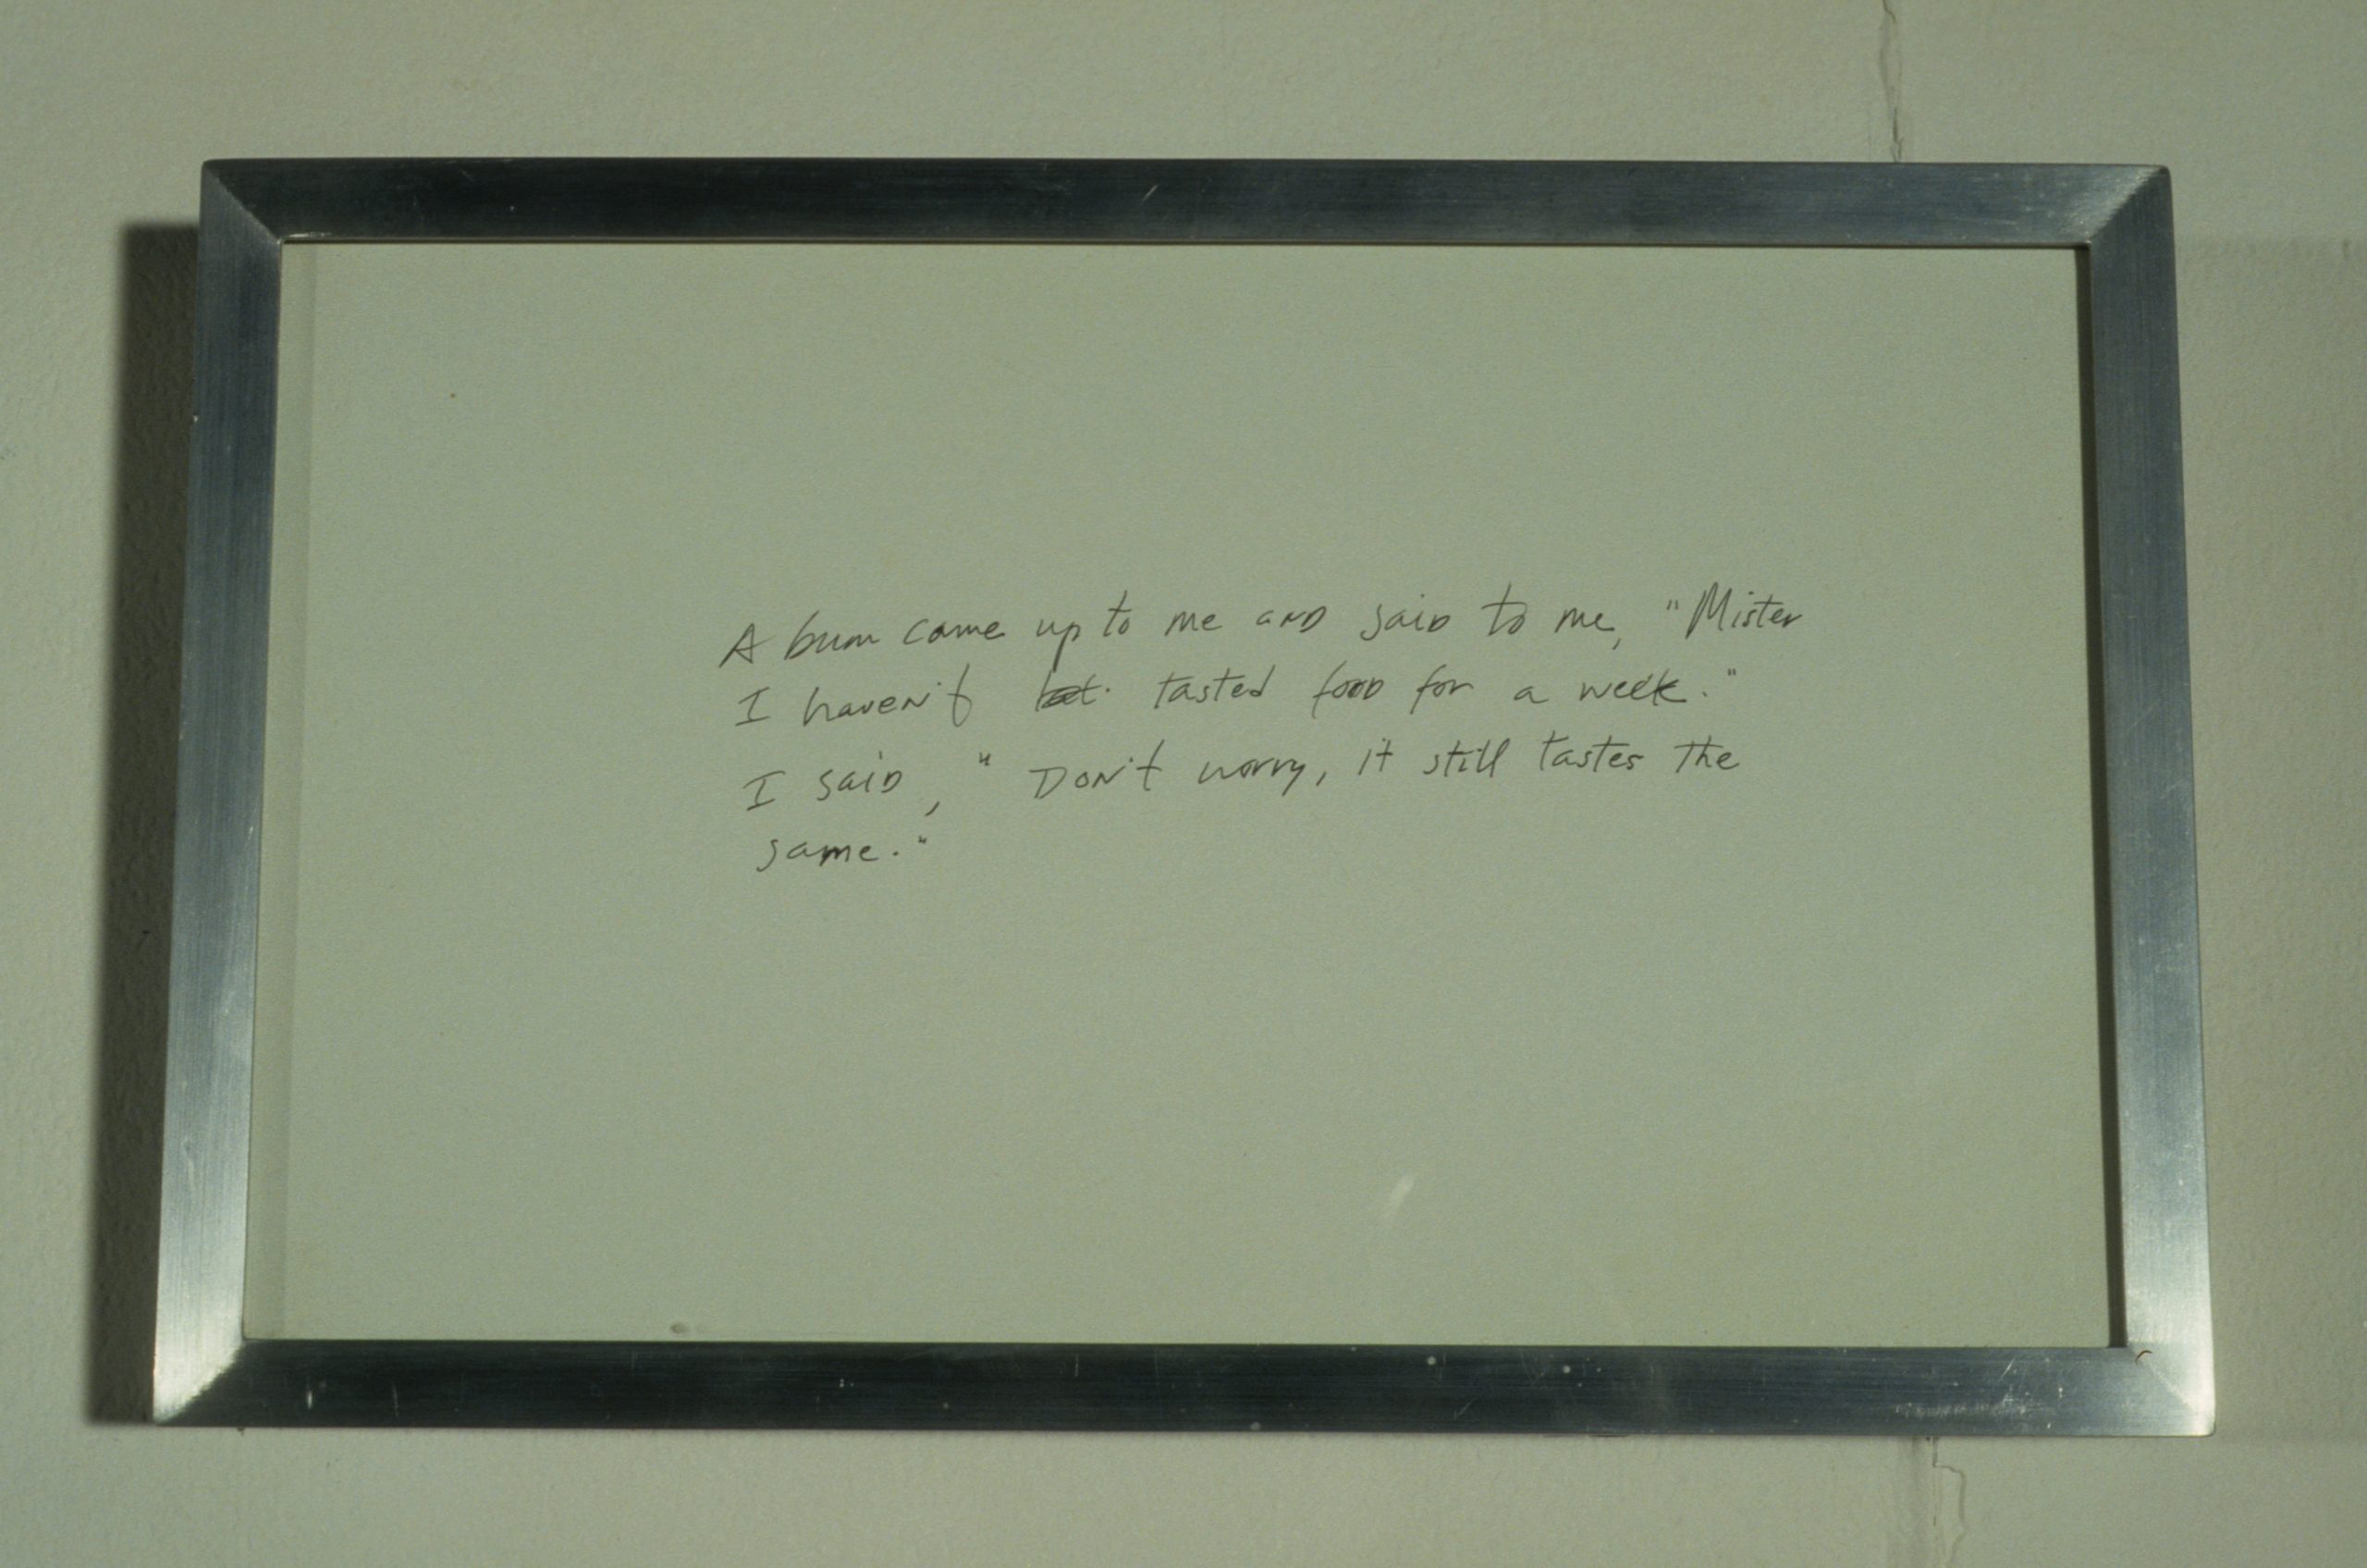 A bum came up to me and said to me, "Mister
I haven't tasted food for a week."
I said, "Don't worry, it still tastes the
same."